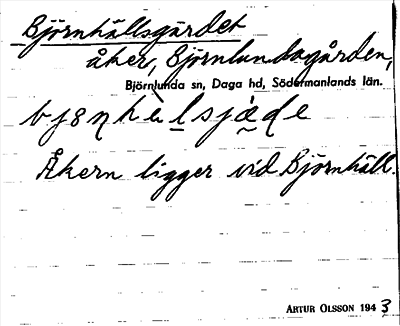 Björnhällsgärdet
åker, Björnlundagården,
Björnlunda sn, Daga hd, Södermanlands län.
Åkern ligger vid Björnhäll.
ARTUR OLSSON 1943